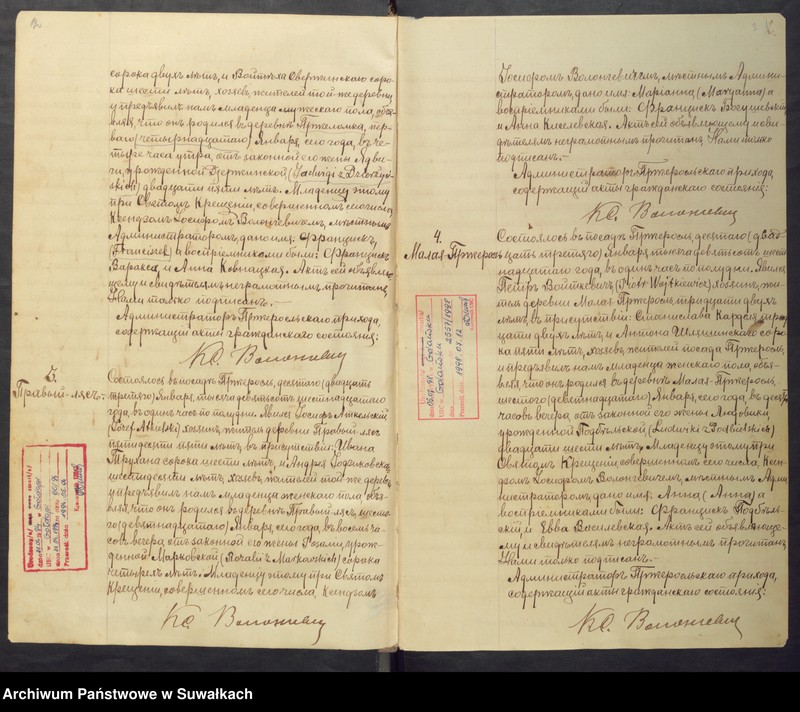 сорока двухъ лѣтъ, и Войтѣха Свержинскаго соро-
ка шести лѣтъ, хозяевъ, жителей той-же деревни
и предъявилъ намъ младенца мужескаго пола, объя-
вляя, что онъ родился въ деревнѣ Пржеломка, пер-
ваго (четырнадцатаго) Января, сего года, въ че-
тыре часа утра, отъ законной его жены Ядви-
ги, урожденной
двадцати пяти лѣтъ. Младенцу этому
при Святомъ Крещеніи, совершенномъ сего числа,
Ксендзомъ Іосифомъ Волонсевичемъ, мѣстнымъ
Администраторомъ, дано имя: Францискъ,
(Franciszek) а воспріемниками были: Францискъ
Варакса и Анна Ковнацкая. Актъ сей объявляю-
щему и свидѣтелямъ неграмотнымъ прочитанъ,
Нами только подписанъ.-
Администраторъ Пржеросльскаго прихода,
содержащій акты гражданскаго состоянія:
Кс. Волонсевич
5.
Правый-лясъ.-
Состоялось въ посадѣ Пржеросль, десятаго (двадцать
третьяго) Января, тысяча девятьсотъ шестнадцатаго
года, въ одинъ часъ по полудни. Явился Іосифъ
(Józef) хозяинъ, житель деревни Правый-лясъ
пятидесяти пяти лѣтъ, въ присутствіи: Ивана
Трухана сорока шести лѣтъ, и Андрея
шестидесяти лѣтъ, хозяевъ, жителей той-же деревни
и предъявилъ намъ младенца женскаго пола, объя-
вляя, что онъ родился въ деревнѣ Правый-лясъ, шес-
таго (девятнадцатаго) Января, сего года, въ восемь ча-
совъ вечера, отъ законной его жены Розаліи, урож-
денной Марковской (Rozalii z Markowskich) сорока
четырехъ лѣтъ. Младенцу этому при Святомъ
Крещеніи, совершенномъ сего числа, Ксендзомъ
Кс. Волонсевич
Іосифомъ Волонсевичемъ, мѣстнымъ Админи-
страторомъ, дано имя: Маріанна (Maryanna) а
воспріемниками были: Францискъ
и Анна. Актъ сей объявляющему и сви-
дѣтелямъ неграмотнымъ прочитанъ, Нами только
подписанъ.-
Администраторъ Пржеросльскаго прихода,
содержащій акты гражданскаго состоянія:
Кс. Волонсевич
4.
Малая-Пржеросль
Состоялось въ посадѣ Пржеросли, десятаго (двад-
цать третьяго) Января тысяча девятьсотъ шест-
надцатаго года, въ одинъ часъ по полудни. Явился
Петръ Войткевичъ (Piotr Wojtkiewicz) хозяинъ, жи-
тель деревни Малая-Пржеросль, тридцати двухъ
лѣтъ, въ присутствіи: Станислава трид-
цати двухъ лѣтъ, и Антона соро-
ка пяти лѣтъ, хозяевъ, жителей посада Пржеросль,
и предъявилъ намъ младенца женскаго пола, объя-
вляя, что онъ родился въ деревнѣ Малая-Пржеросль,
шестого (девятнадцатаго) Января, сего года, въ десять
часовъ вечера, отъ законной его жены Людвики,
урожденной
двадцати шести лѣтъ. Младенцу этому при
Святомъ Крещеніи, совершенномъ сего числа, Ксен-
дзомъ Іосифомъ Волонсевичемъ, мѣстнымъ Адми-
нистраторомъ, дано имя: Анна (Anna) а
воспріемниками были: Францискъ
и Ева Василевская. Актъ сей объявляюще-
му и свидѣтелямъ неграмотнымъ прочитанъ,
Нами только подписанъ.-
Администраторъ Пржеросльскаго прихода,
содержащій акты гражданскаго состоянія:
Кс. Волонсевич
Archiwum Państwowe w Suwałkach